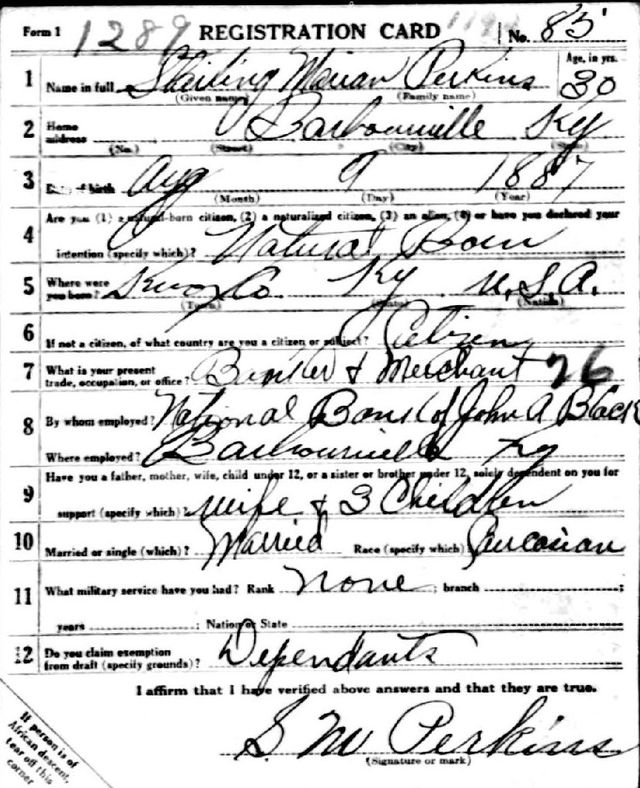 Form 1 1289 REGISTRATION CARD No. 83
1 Name in full Starling Marian Perkins Age, in yrs. 30
(Given name) (Family name)
2 Home address Barbourville Ky
(No.) (Street) (City) (State)
3 Date of birth Aug 9 1887
(Month) (Day) (Year)
Are you (1) a natural-born citizen, (2) a naturalized citizen, (3) an alien, (4) or have you declared your
4 intention (specify which)? Natural Born
5 Where were you born? Knox Co Ky U.S.A.
(Town) (State) (Nation)
6 If not a citizen, of what country are you a citizen or subject? Citizen
7 What is your present trade, occupation, or office? Banker & Merchant 26
8 By whom employed? National Bank of John A Black
Where employed? Barbourville Ky
Have you a father, mother, wife, child under 12, or a sister or brother under 12, solely dependent on you for
9 support (specify which)? wife & 3 Children
10 Married or single (which)? Married Race (specify which) Caucasian
11 What military service have you had? Rank None ; branch ;
years ; Nation or State
12 Do you claim exemption from draft (specify grounds)? Dependants
I affirm that I have verified above answers and that they are true.
S. M Perkins
(Signature or mark)
If person is of
African descent,
tear off this
corner